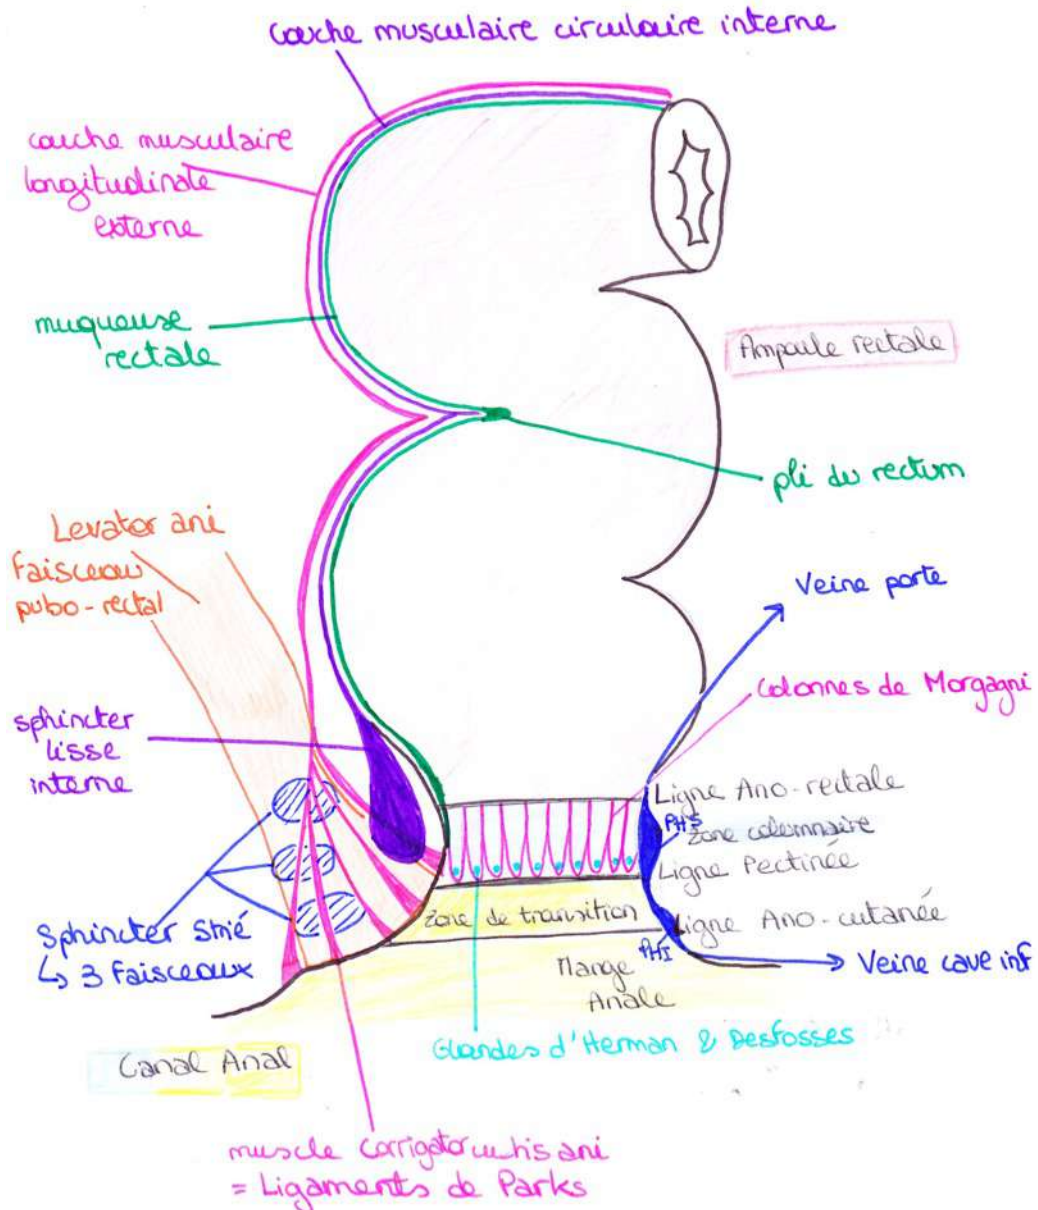 couche musculaire circulaire interne
couche musculaire
longitudinale
externe
muqueuse
rectale
Ampoule rectale
pli du rectum
Levator ani
Faisceau
pubo-rectal
Veine porte
Colonnes de Morgagni
sphincter
lisse
interne
Ligne Ano-rectale
PHS
Zone colemnaire
Ligne Pectinée
Zone de transition
Ligne Ano-cutanée
PHI
Sphincter Strié
↳ 3 Faisceaux
Veine cave inf
Marge
Anale
Glandes d'Herman & Desfosses
Canal Anal
muscle Corrigator cuhis ani
= Ligaments de Parks